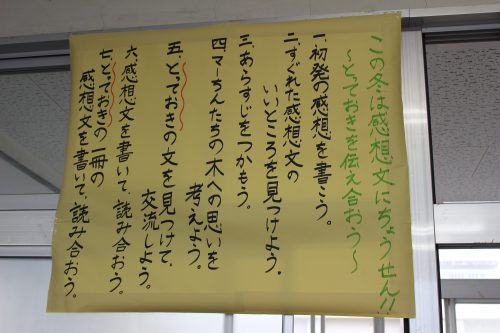 この冬は感想文にちょうせん!!
～とっておきを伝え合おう～
一、初発の感想を書こう。
二、すぐれた感想文の
いいところを見つけよう。
三、あらすじをつかもう。
四、マーちんたちの木への思いを
考えよう。
五、とっておきの文を見つけて、
交流しよう。
六、感想文を書いて、読み合おう。
七、とっておきの一冊の
感想文を書いて、読み合おう。